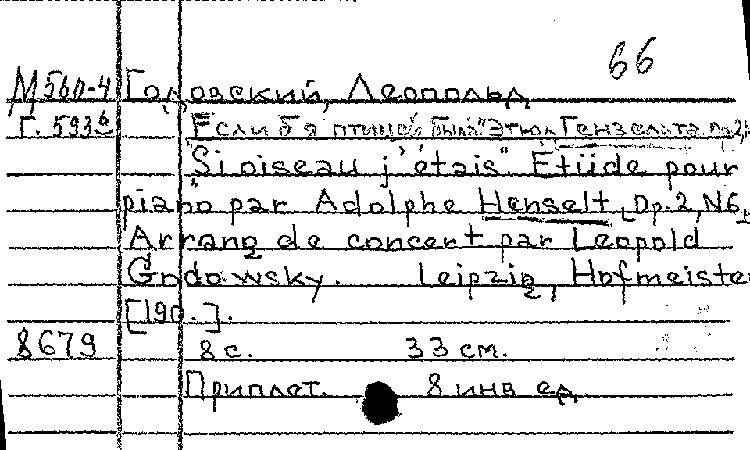 66
М5бп-4 Годовский, Леопольд
Г. 593б Если б я птицей был. Этюд Гензельта
"Si oiseau j'étais" Etüde pour
piano par Adolphe Henselt, Op. 2, N6,
Arrang de concert par Leopold
Godowsky. Leipzig, Hofmeister
[190.].
8679 8 с. 33 см.
Приплет. 8 инв ед